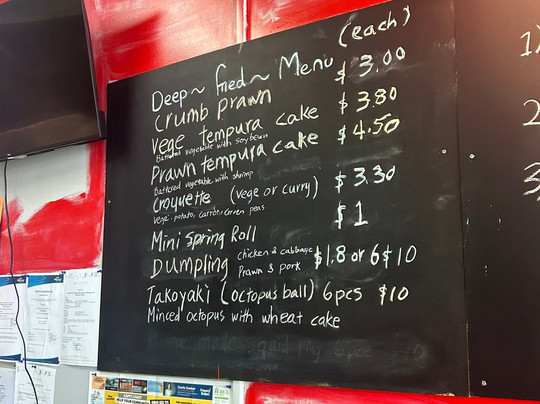 Deep~ fried~ Menu (each)
Crumb prawn $3.00
Vege tempura cake $3.80
Battered vegetable with soybean
Prawn tempura cake $4.50
Battered vegetable with shrimp
Croquette (vege or curry) $3.30
vege: potato, carrot, green peas
Mini spring Roll $1
Dumpling chicken & cabbage $1.8 or 6$10
Prawn & pork
Takoyaki (octopus ball) 6pcs $10
Minced octopus with wheat cake
1
2
3